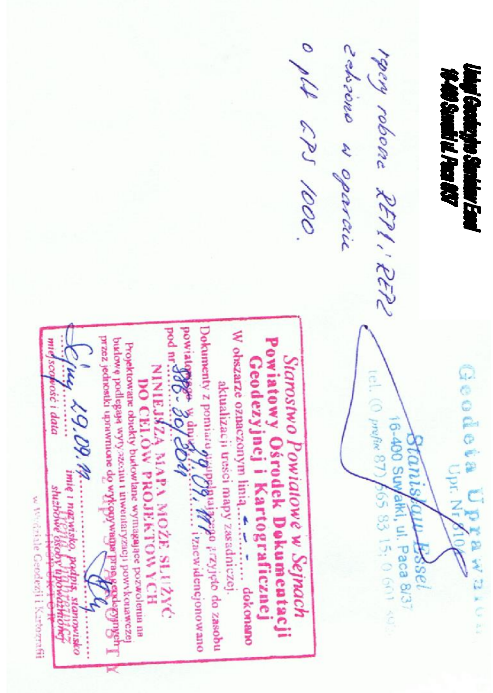 Usługi Geodezyjne Stanisław Essel
16-400 Suwałki ul. Paca 8/37
repery robocze REP1 i REP2
założono w oparciu
o pkt GPS 1000.
Geodeta Uprawnion
Upr. Nr
Stanisław Essel
16-400 Suwałki, ul. Paca 8/37
tel. (0 prefix 87) 565 83 15; 0 601
Starostwo Powiatowe w Sejnach
Powiatowy Ośrodek Dokumentacji
Geodezyjnej i Kartograficznej
W obszarze oznaczonym linią - - - dokonano
aktualizacji treści mapy zasadniczej.
Dokumenty z pomiaru przyjęto do zasobu
powiatowego w dniu i zaewidencjonowano
pod nr
NINIEJSZA MAPA MOŻE SŁUŻYĆ
DO CELÓW PROJEKTOWYCH
Projektowane obiekty budowlane wymagające pozwolenia na
budowę podlegają wytyczeniu i inwentaryzacji powykonawczej
przez jednostki uprawnione do wykonywania prac geodezyjnych
Sejny 29.09.11
miejscowość i data
imię i nazwisko, podpis, stanowisko
służbowe osoby upoważnionej
w Wydziale Geodezji i Kartografii